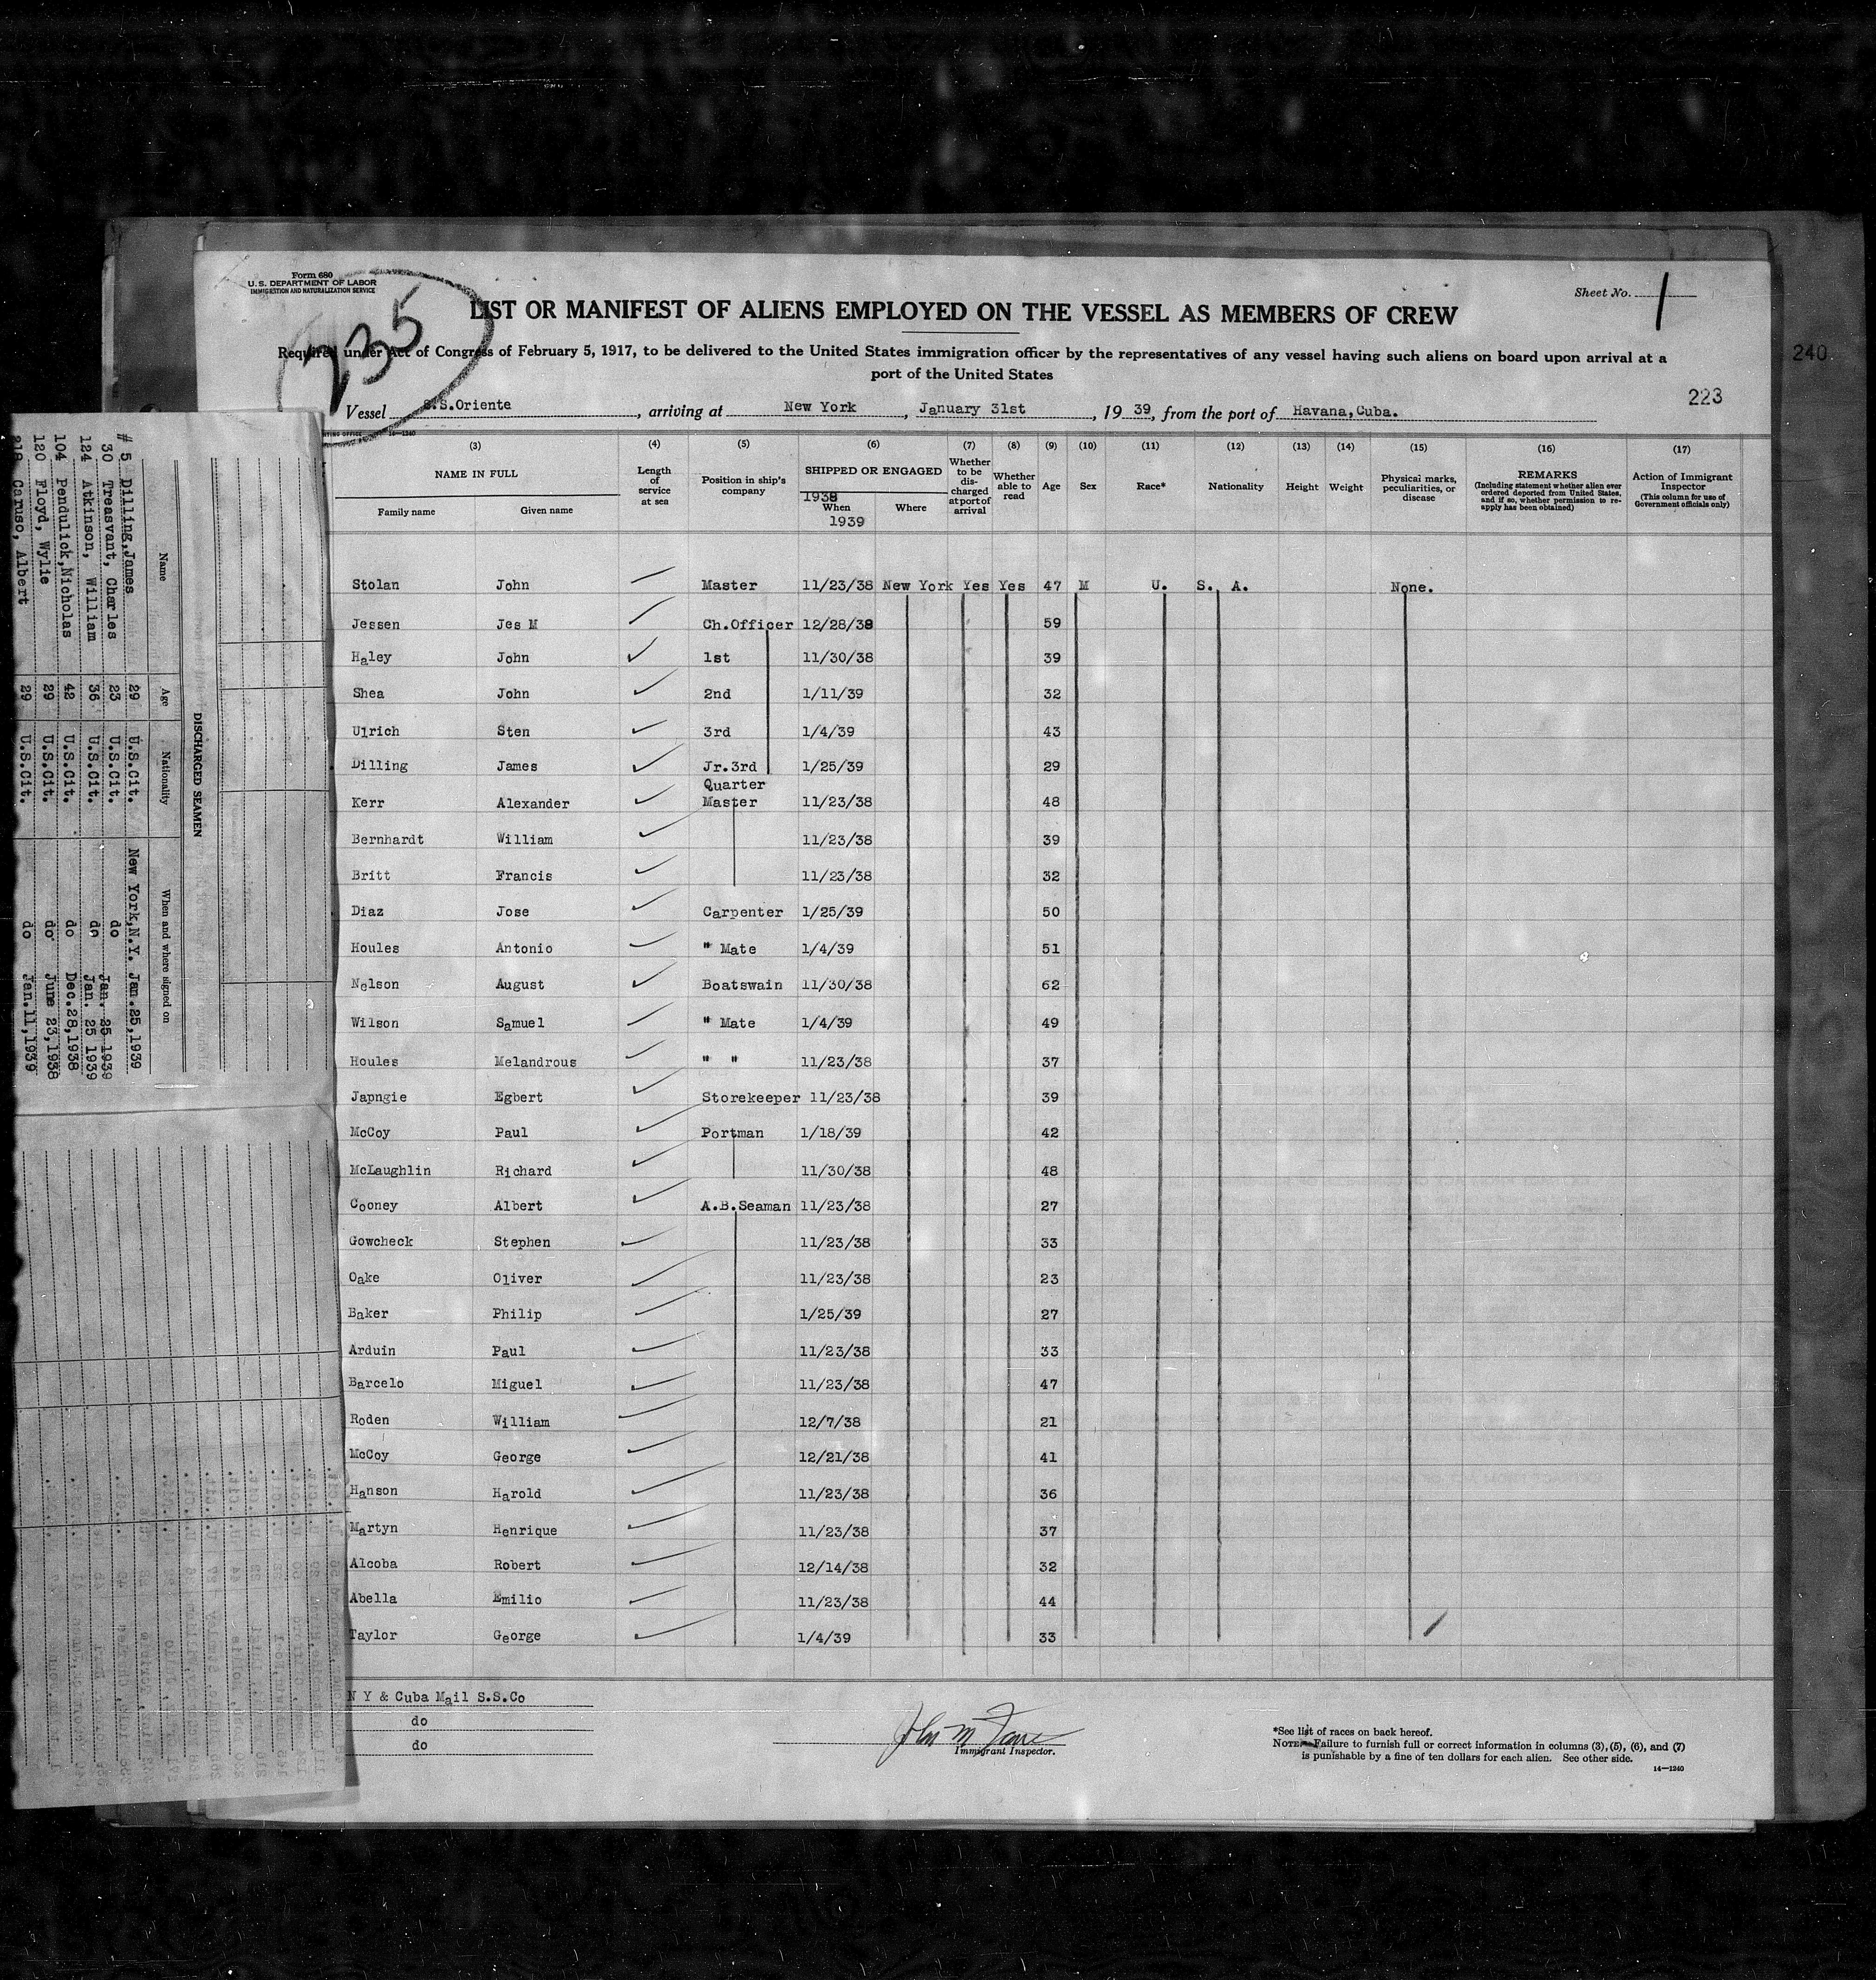 Form 680
U.S. DEPARTMENT OF LABOR
IMMIGRATION AND NATURALIZATION SERVICE
235
Sheet No. 1
LIST OR MANIFEST OF ALIENS EMPLOYED ON THE VESSEL AS MEMBERS OF CREW
Required under Act of Congress of February 5, 1917, to be delivered to the United States immigration officer by the representatives of any vessel having such aliens on board upon arrival at a
port of the United States
240.
223
Vessel S.S.Oriente, arriving at New York, January 31st, 19 39, from the port of Havana,Cuba.
14-1240
(3) (4) (5) (6) (7) (8) (9) (10) (11) (12) (13) (14) (15) (16) (17)
NAME IN FULL Length of service at sea Position in ship's company SHIPPED OR ENGAGED Whether to be discharged at port of arrival Whether able to read Age Sex Race* Nationality Height Weight Physical marks, peculiarities, or disease REMARKS Action of Immigrant Inspector
(Including statement whether alien ever ordered deported from United States, and if so, whether permission to reapply has been obtained) (This column for use of Government officials only)
Family name Given name 1938 When 1939 Where
Stolan John Master 11/23/38 New York Yes Yes 47 M U. S. A. None.
Jessen Jes M Ch.Officer 12/28/38 59
Haley John 1st 11/30/38 39
Shea John 2nd 1/11/39 32
Ulrich Sten 3rd 1/4/39 43
Dilling James Jr.3rd 1/25/39 29
Kerr Alexander Quarter Master 11/23/38 48
Bernhardt William 11/23/38 39
Britt Francis 11/23/38 32
Diaz Jose Carpenter 1/25/39 50
Houles Antonio " Mate 1/4/39 51
Nelson August Boatswain 11/30/38 62
Wilson Samuel " Mate 1/4/39 49
Houles Melandrous " " 11/23/38 37
Japngie Egbert Storekeeper 11/23/38 39
McCoy Paul Portman 1/18/39 42
McLaughlin Richard 11/30/38 48
Cooney Albert A.B.Seaman 11/23/38 27
Gowcheck Stephen 11/23/38 33
Oake Oliver 11/23/38 23
Baker Philip 1/25/39 27
Arduin Paul 11/23/38 33
Barcelo Miguel 11/23/38 47
Roden William 12/7/38 21
McCoy George 12/21/38 41
Hanson Harold 11/23/38 36
Martyn Henrique 11/23/38 37
Alcoba Robert 12/14/38 32
Abella Emilio 11/23/38 44
Taylor George 1/4/39 33
N Y & Cuba Mail S.S.Co
do
do
Immigrant Inspector.
*See list of races on back hereof.
NOTE.—Failure to furnish full or correct information in columns (3), (5), (6), and (7)
is punishable by a fine of ten dollars for each alien. See other side.
14—1240
DISCHARGED SEAMEN
Name Age Nationality When and where signed on
# 5 Dilling,James 29 U.S.Cit. New York,N.Y. Jan.25,1939
30 Treasvant, Charles 23 U.S.Cit. do Jan. 25 1939
124 Atkinson, William 36 U.S.Cit. do Jan. 25 1939
104 Pendulick,Nicholas 42 U.S.Cit. do Dec.28,1938
120 Floyd, Wylie 29 U.S.Cit. do June 23,1938
Caruso, Albert 29 U.S.Cit. do Jan.11,1939